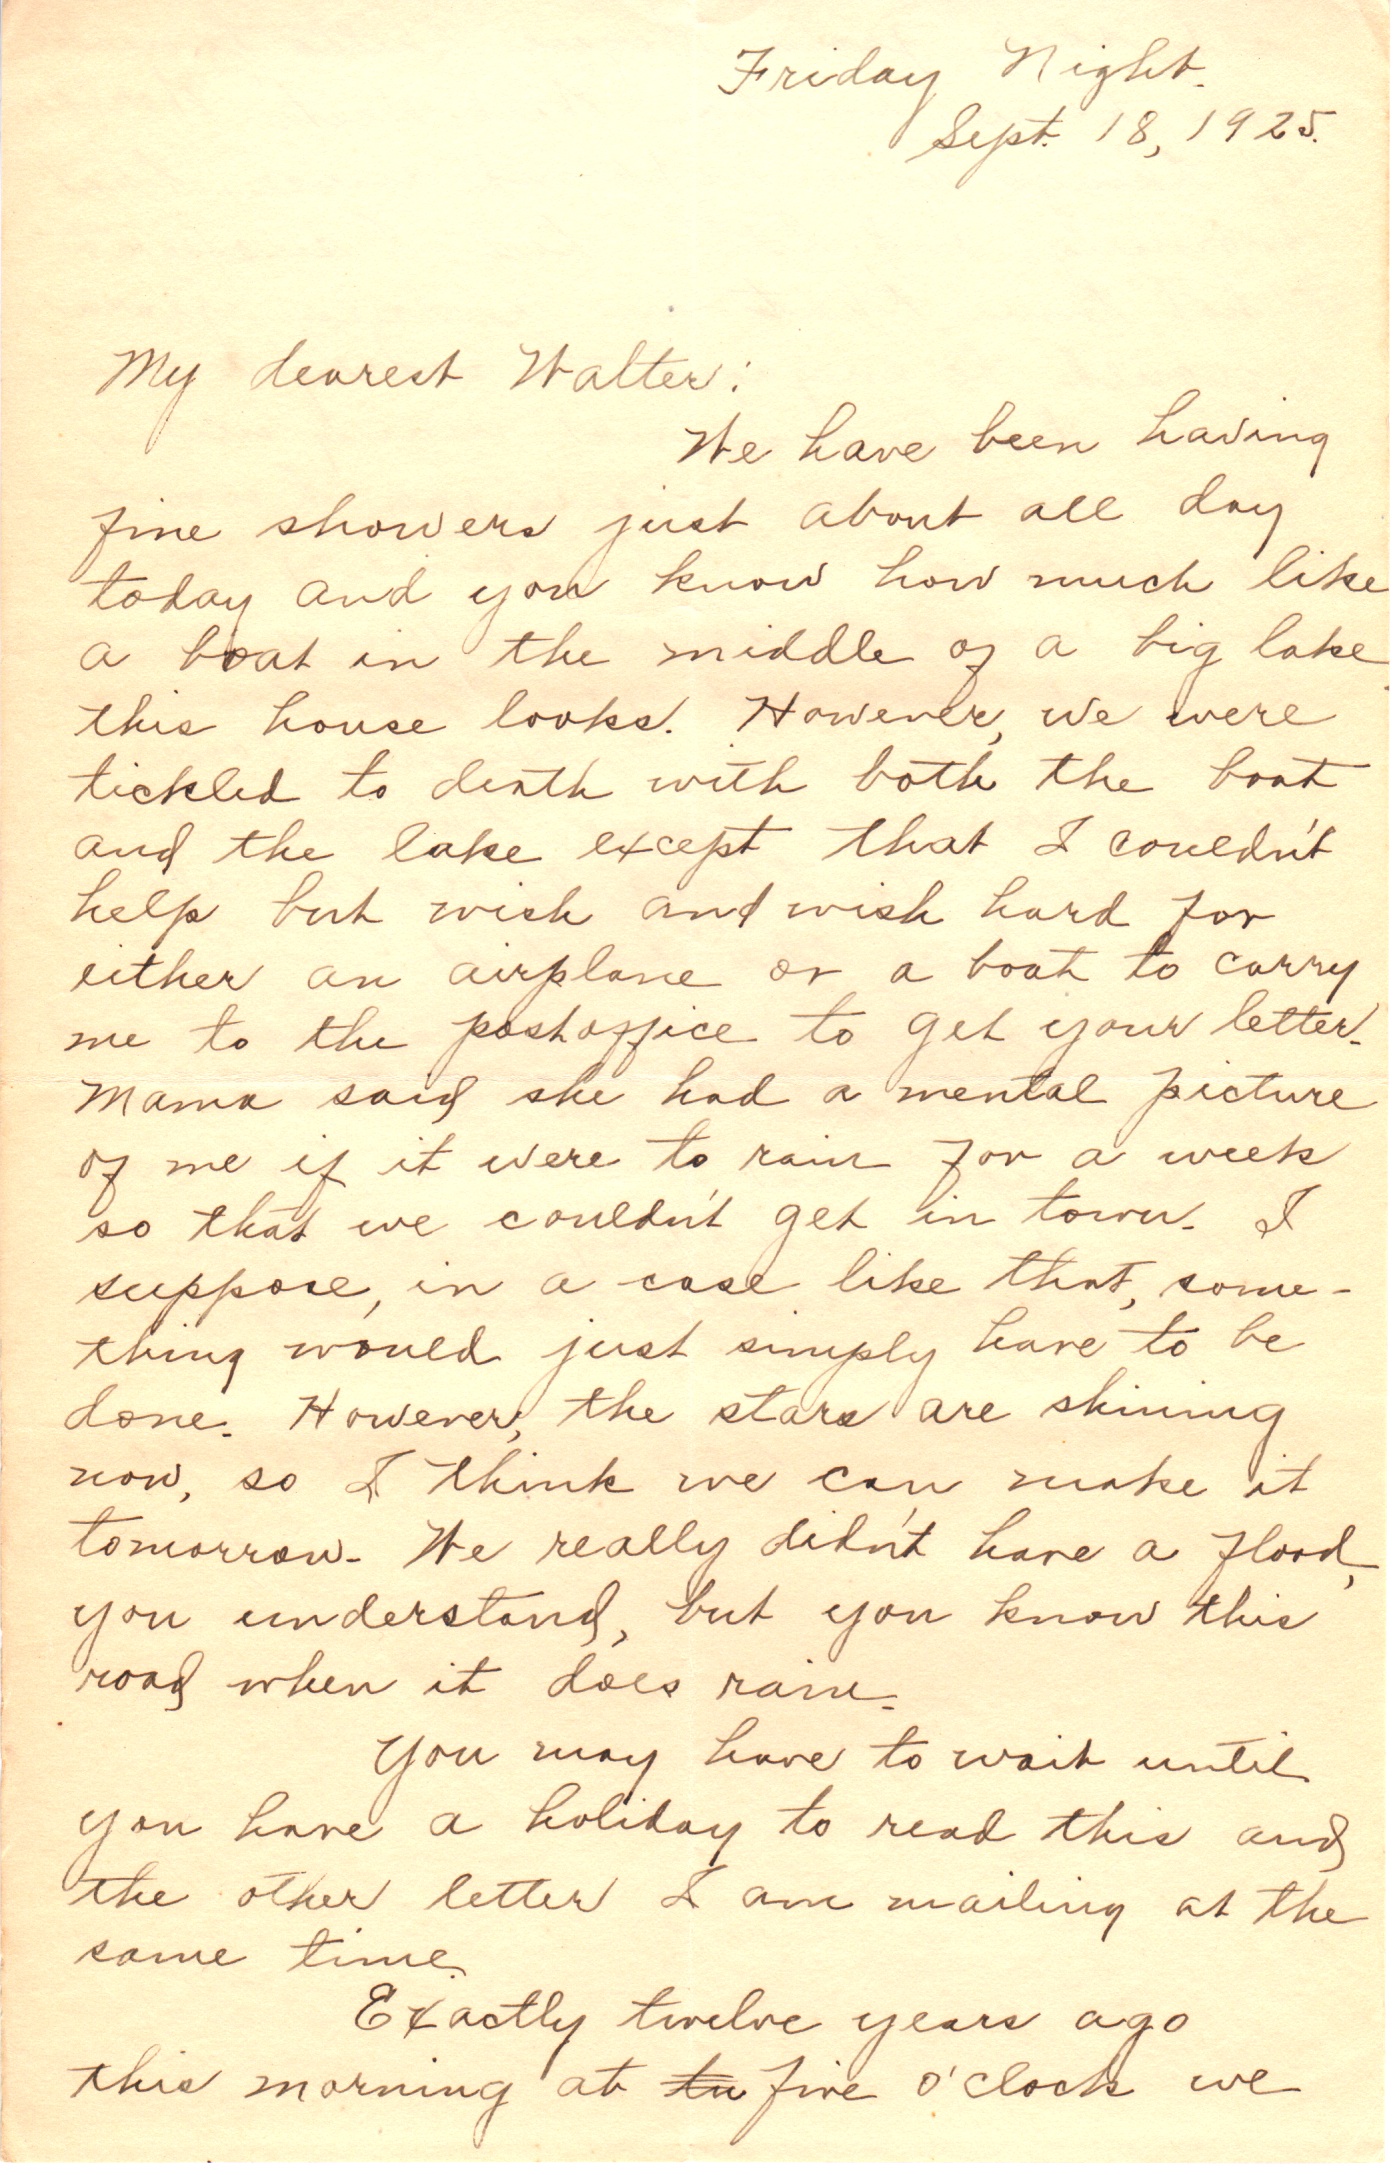 Friday Night.
Sept. 18, 1925.
My dearest Walter:
We have been having
fine showers just about all day
today and you know how much like
a boat in the middle of a big lake
this house looks. However, we were
tickled to death with both the boat
and the lake except that I couldn't
help but wish and wish hard for
either an airplane or a boat to carry
me to the postoffice to get your letter.
Mama said she had a mental picture
of me if it were to rain for a week
so that we couldn't get in town. I
suppose, in a case like that, some-
thing would just simply have to be
done. However, the stars are shining
now, so I think we can make it
tomorrow. We really didn't have a flood,
you understand, but you know this
road when it does rain.
You may have to wait until
you have a holiday to read this and
the other letter I am mailing at the
same time.
Exactly twelve years ago
this morning at tw five o'clock we